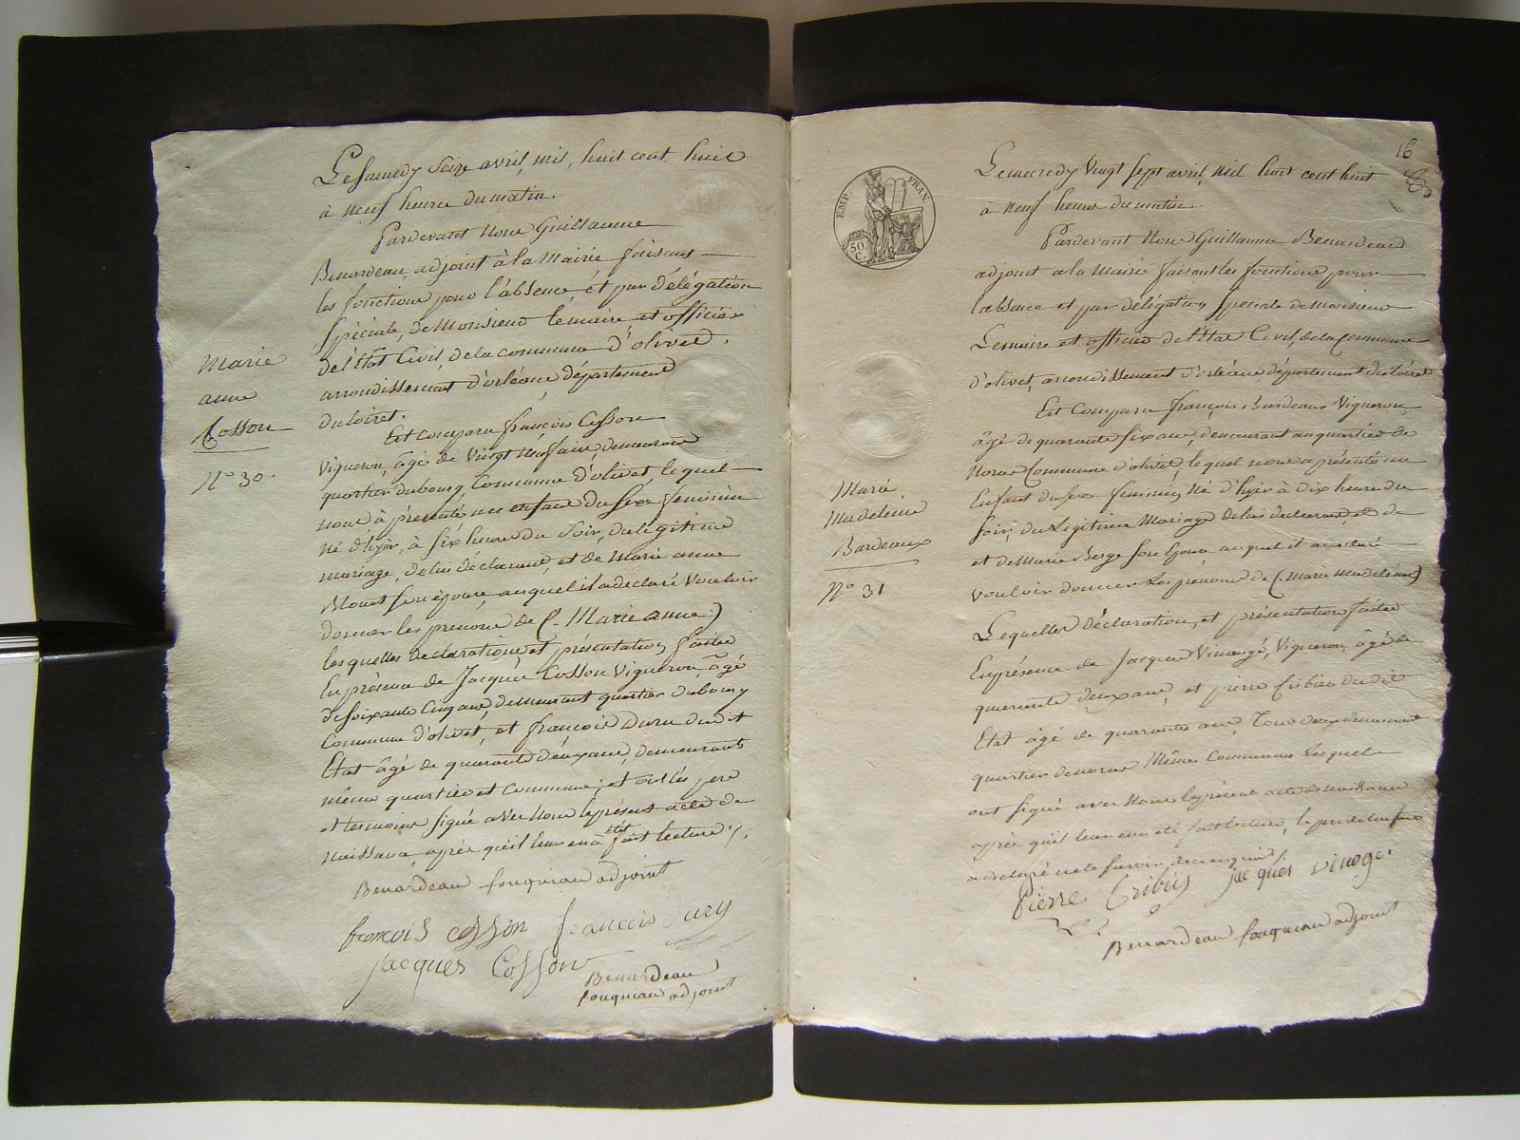 Le samedy Seize avril, mil, huit cent huit
à neuf heure du matin.
Pardevant Nous Guillaume
Benardeau, adjoint à la Mairie faisant
les fonctions pour l'absence et par délégation
spéciale, de Monsieur le maire et officier
de l'état Civil, de la commune d'olivet,
arrondissement d'orléans, département
du loiret.
Est comparu françois Cosson
Vigneron, âgé de Vingt neuf ans, demeurant
quartier du bourg Commune d'olivet lequel
nous à présenté un enfant du Sexe féminin
né d'hyer, à six heure du Soir, du légitime
mariage, de lui déclarant, et de Marie anne
Blouet son épouse, auquel il a declaré Vouloir
donner les prenoms de (. Marie anne.)
les quelles declarations et présentation faites
En présence de Jacques Cosson Vigneron, âgé
de Soixante Cinq ans, demeurant quartier du bourg
Commune d'olivet, et françois Duru dudit
Etat âgé de quarante deux ans, demeurant
même quartier et Commune, et ont les pere
et temoins signé avec Nous le présent acte de
Naissance, après qu'il leur en à été fait lecture /.
Benardeau fouqueau adjoint
françois cosson francois dury
Jacques Cosson
Benardeau
fouqueau adjoint
Marie
anne
Cosson
N° 30.
16
EMP. FRAN.
50 C.
Le mercredy Vingt sept avril, Mil huit cent huit
à neuf heures du matin.
Pardevant Nous Guillaume Benardeau
adjoint a la Mairie faisant les fonctions pour
l'absence et par délégation speciale de Monsieur
Lemaire et officier de l'état Civil, de la Commune
d'olivet, arrondissement d'orléans, département du Loiret
Est Comparu françois Bardeaux Vigneron,
âgé de quarante six ans, demeurant au quartier de
Commune d'olivet, lequel nous a présenté un
Enfant du sexe feminin, Né d'hyer à Dix heure du
soir, du Légitime Mariage de lui déclarant, et de
et de Marie Berge son Epouse auquel il a declaré
vouloir donner Les prénoms de (. Marie Madeleine)
Lesquelles déclaration, et présentation faites
En présence de Jacques Vinauge, Vigneron, âgé de
quarante deux ans, et pierre Cribier du dit
Etat âgé de quarante ans, Tous deux demeurant
quartier de Même Commune Lesquels
ont signé avec Nous le présent acte de naissance
après qu'il leur en a été fait lecture, le pere de l'enfant
a declaré ne le savoir de ce enquis /.
Pierre Cribié jacques vinoge
Benardeau fouqueau adjoint
Marie
Madeleine
Bardeaux
N° 31